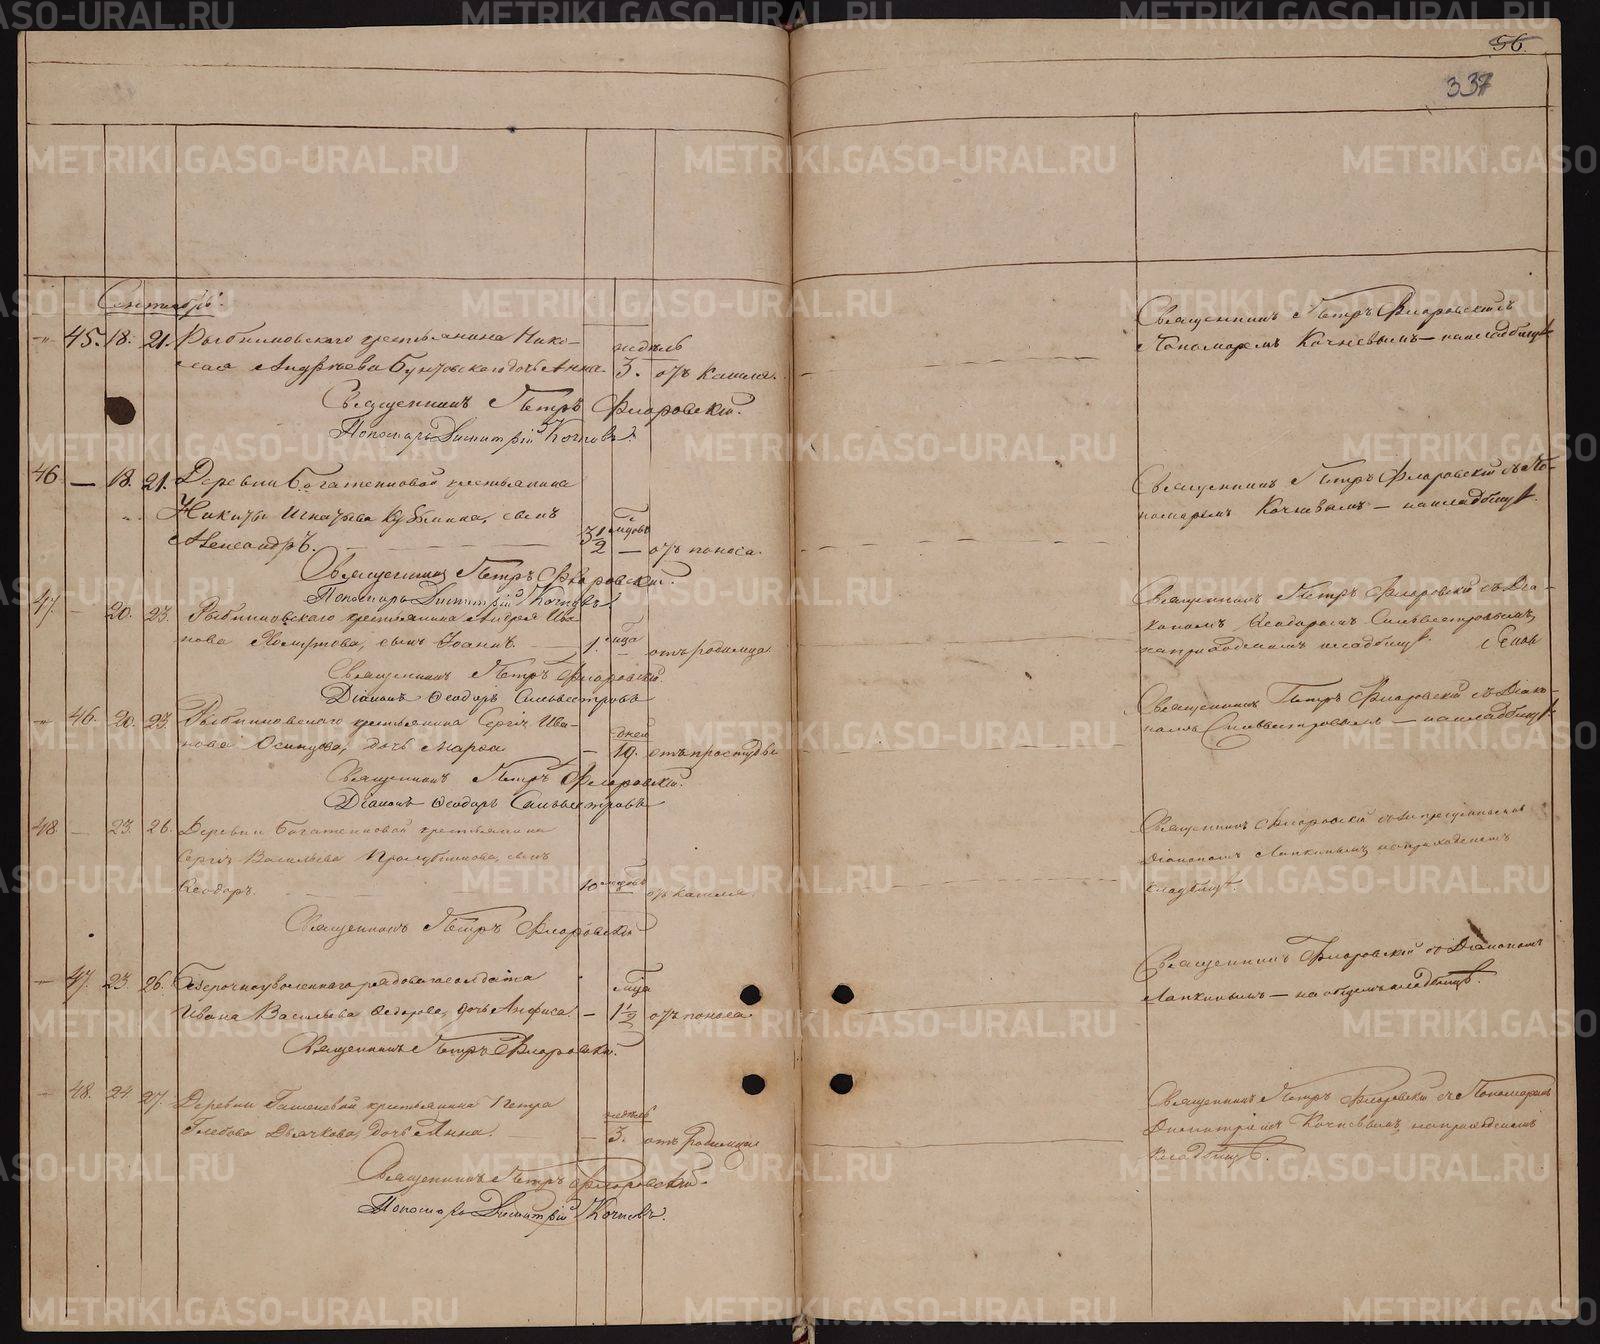 56.
337
Сентябрь.
" 45. 18. 21. Рыбниковскаго крестьянина Нико-
лая Андреева Бунтовскаго дочь Анна. недѣль 3. отъ кашля.
Священникъ Петръ Флоровскій.
Пономарь Димитрій Кочневъ.
Священникъ Петръ Флоровскій съ
Пономаремъ Кочневымъ — на кладбищѣ
46 — 18. 21. Деревни Богатенковой крестьянина
Никиты Игнатьева сынъ
Александръ. 3 1/2 мѣсцовъ — отъ поноса.
Священникъ Петръ Флоровскій.
Пономарь Димитрій Кочневъ.
Священникъ Петръ Флоровскій съ По-
номаремъ Кочневымъ — на кладбищѣ.
47. — 20. 23. Рыбниковскаго крестьянина Андрея Ива-
нова сынъ Іоаннъ. — 1. мѣсца — отъ родимца.
Священникъ Петръ Флоровскій.
Діаконъ Ѳеодоръ Сильвестровъ
Священникъ Петръ Флоровскій съ Діа-
кономъ Ѳеодоромъ Сильвестровымъ,
на приходскомъ кладбищѣ.
" 46. 20. 23. Рыбниковскаго крестьянина Сергія Ива-
нова Осинцова, дочь Марѳа — дней 19. отъ простуды
Священникъ Петръ Флоровскій.
Діаконъ Ѳеодоръ Сильвестровъ
Священникъ Петръ Флоровскій съ Діако-
номъ Сильвестровымъ — на кладбищѣ.
48 — 23. 26. Деревни Богатенковой крестьянина
Сергія Васильева Пролубникова, сынъ
Ѳеодоръ. 10 мѣсцовъ — отъ кашля.
Священникъ Петръ Флоровскій
Священникъ Флоровскій съ
Діакономъ Лапкинымъ, на приходскомъ
кладбищѣ.
— 47. 23. 26. Безсрочноуволеннаго рядоваго солдата
Ивана Васильева Ѳедорова, дочь Анфиса. — мѣсца 1 1/2 отъ поноса.
Священникъ Петръ Флоровскій.
Священникъ Флоровскій съ Діакономъ
Лапкинымъ — на общемъ кладбищѣ.
— 48. 24 27. Деревни Гашеневой крестьянина Петра
Глебова Дьячкова, дочь Анна. — недѣль 3. отъ родимца.
Священникъ Петръ Флоровскій.
Пономарь Димитрій Кочневъ.
Священникъ Петръ Флоровскій съ Пономаремъ
Димитріемъ Кочневымъ, на приходскомъ
кладбищѣ.
METRIKI.GASO-URAL.RU